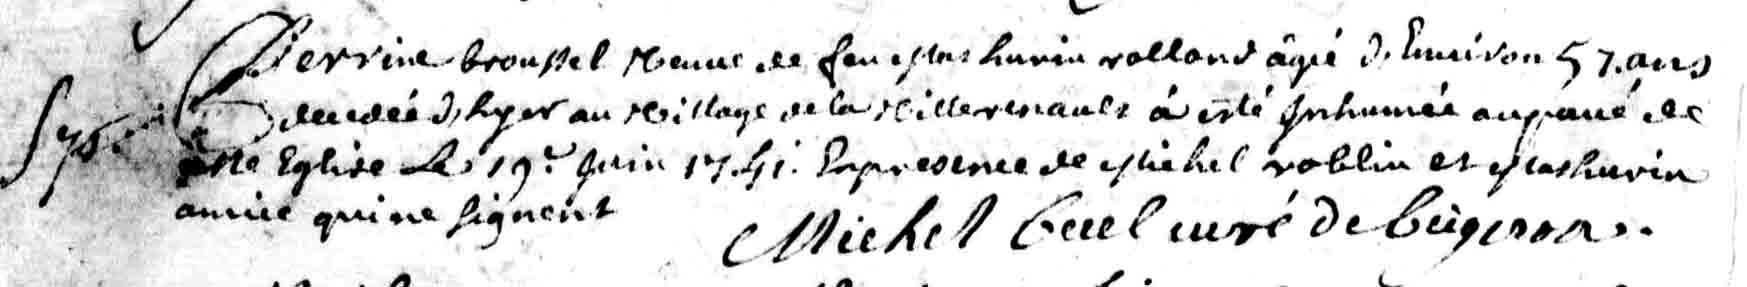 Perrine broussel Veuve de feu Mathurin rolland âgé d'Environ 57. ans
decedée d'hyer au Village de la Villerenault à esté Inhumée au pavé de
cette Eglise Le 19.e Juin 1741. En presence de Michel roblin et Mathurin
amice qui ne signent
Michel curé de